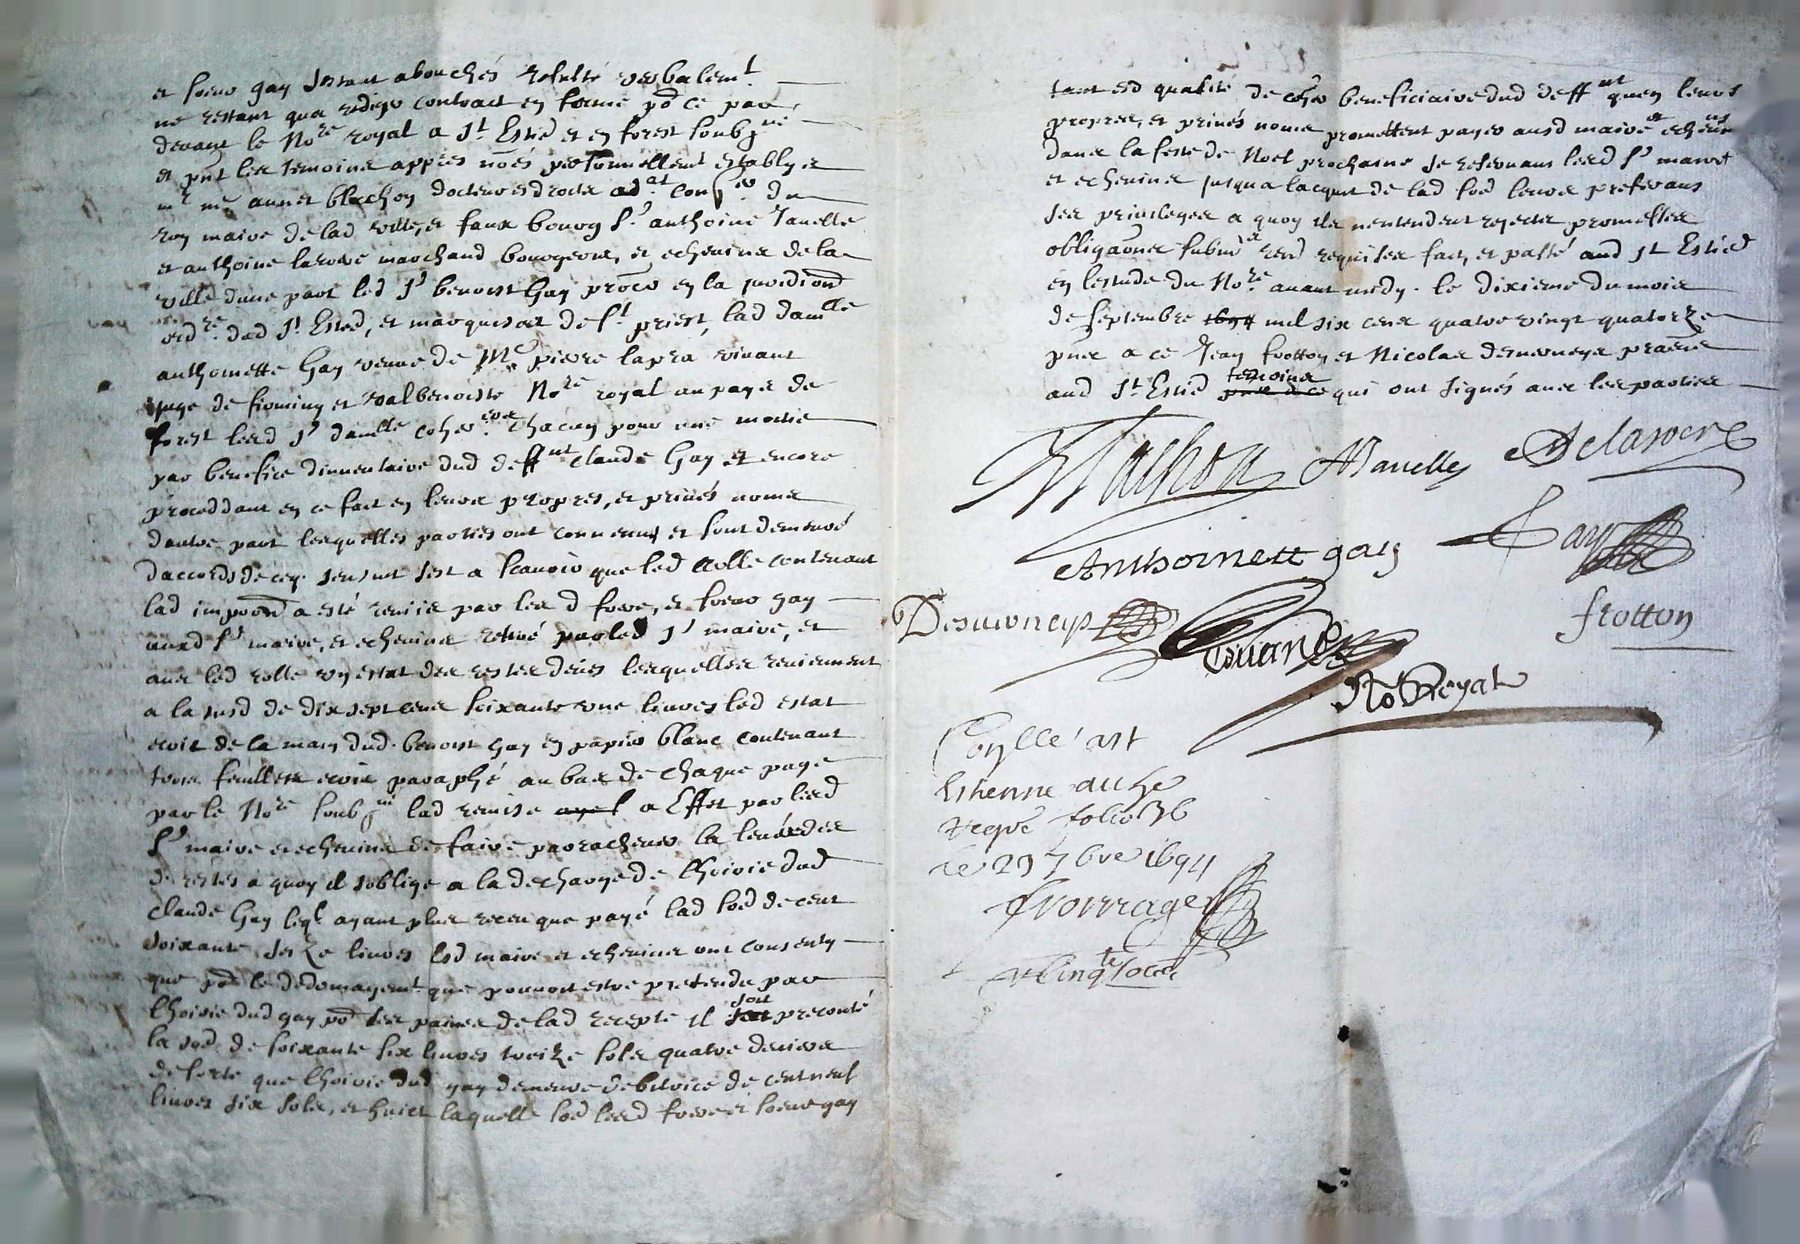 et soeur gay s'estant abouchés resulté verbalemt
ne restant qua rediger contract en forme po ce par
devant le Nore royal a St Estne et en forest soubzné
et pnt les temoins appres nōés personnellemt establys
mr me annet blachon docteur es droits advat conser du
roy maire de lad ville, et faux bourg sr anthoine Janelle
et anthoine larove marchand bourgeois, et echevins de la
ville d'une part led sr benoist Gay procr en la juridion
ordre dud St Estne, et marquisat de St priest, lad damlle
anthoinette Gay veuve de Me pierre lapra vivant
juge de firminy et valbenoiste Nore royal au pays de
forest lesd sr damlle cohers chacun pour une moitie
par benefice d'inventaire dud deffnt Claude Gay et encore
proceddant en ce fait en leurs propres, et privés noms
dautre part lesquelles parties ont convenus et sont demeuré
daccords de ce qui sensuit sest a scavoir que led rolle contenant
lad impoon a esté remis par lesd frere, et soeur gay
ausd srs maire, et echevins retiré par led sr maire, et
avec led rolle un estat des restes deues lesquelles reviennent
a la susd de dix sept cens soixante une livres led estat
ecrit de la main dud benoist Gay en papier blanc contenant
trois feuillets ecrits paraphé au bas de chaque page
par le Nore soubzné lad remise a Effet par lesd
srs maire et echevins de faire parachever la levée des
d restes a quoy il soblige a la decharge de lhoirie dud
Claude Gay leql ayant plus receu que payé lad sode de cent
soixante seize livres lesd maire et echevins ont consenty
que po le dedomagemt que pouvoit estre pretendu par
lhoirie dud gay po les paines de lad recepte il soit preconté
la sode de soixante six livres treize sols quatre deniers
de sorte que lhoirie dud gay demeure debitrice de cent neuf
livres six sols, et huict laquelle sode lesd frere et soeur gay
tant esd qualité de cohers beneficiaire dud deffnt quen leurs
propres, et privés noms promettent payer ausd maire et echevins
dans la feste de Noel prochaine se reservant lesd srs maire
et echevins jusqua lacquit de lad sode leurs preferans
ses privileges a quoy ils nentendent rejecter promesses
obligaons submions rend requises fait, et passé aud St Estne
en lestude du Nore avant midy le dixieme du mois
de septembre 1694 mil six cens quatre vingt quatorze
pns a ce Jean frotton et Nicolas desuerneys praens
aud St Estne temoins qui ont signés avec les parties
Blachon AJanelle A Delarove
Anthoinett gay Gay
Desuerneys frotton
No Royal
Contlle a St
Estienne au 5e
regre folio 36
le 29 7bre 1694
fromage